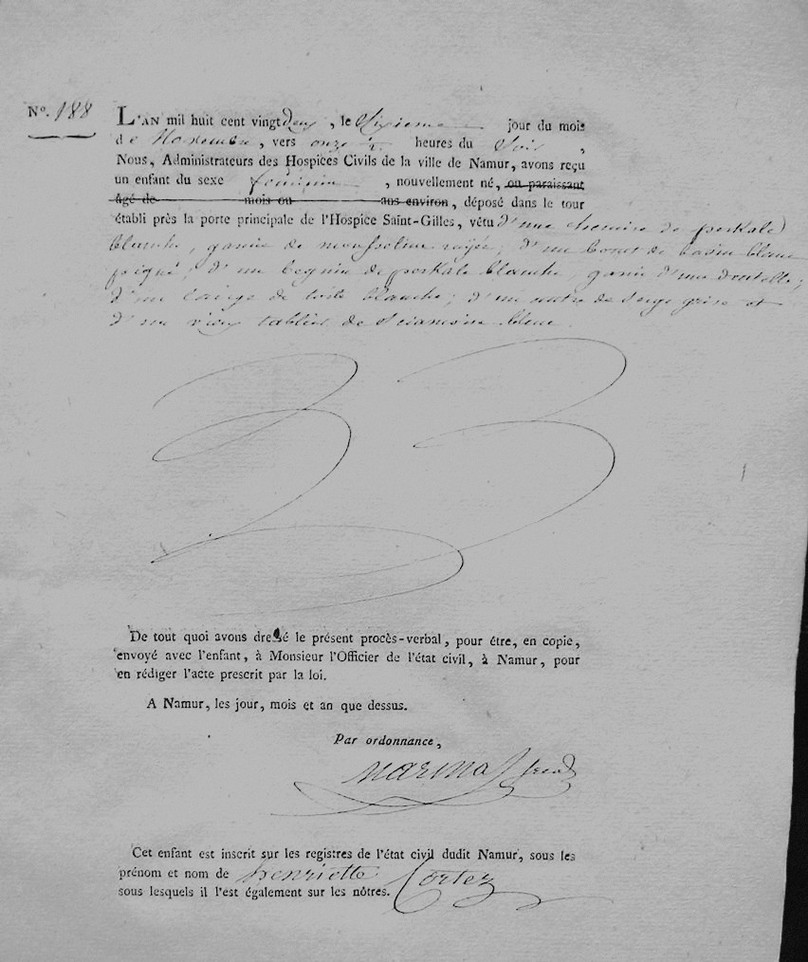 N°. 188
L'AN mil huit cent vingt deux, le Sixieme jour du mois
de Novembre, vers onze ½ heures du Soir,
Nous, Administrateurs des Hospices Civils de la ville de Namur, avons reçu
un enfant du sexe feminin, nouvellement né, ou paraissant
âgé de mois ou ans environ, déposé dans le tour
établi près la porte principale de l'Hospice Saint-Gilles, vêtu d'une chemise de perkale
blanche, garnie de mousseline rayée; d'un bonet de basin blanc
piqué; d'un beguin de perkale blanche, garni d'une dentelle;
d'un lange de toile blanche; d'un autre de serge grise et
d'un vieux tablier de Siamoise bleue.
De tout quoi avons dressé le présent procès-verbal, pour être, en copie,
envoyé avec l'enfant, à Monsieur l'Officier de l'état civil, à Namur, pour
en rédiger l'acte prescrit par la loi.
A Namur, les jour, mois et an que dessus.
Par ordonnance,
Cet enfant est inscrit sur les registres de l'état civil dudit Namur, sous les
prénom et nom de henriette Cortez
sous lesquels il l'est également sur les nôtres.